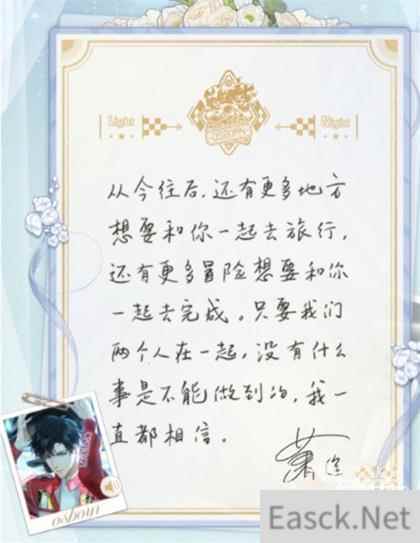 Light
Night
从今往后,还有更多地方
想要和你一起去旅行,
还有更多冒险想要和你
一起去完成。只要我们
两个人在一起,没有什么
事是不能做到的,我一
直都相信。
萧逸
osborn
Easck.Net